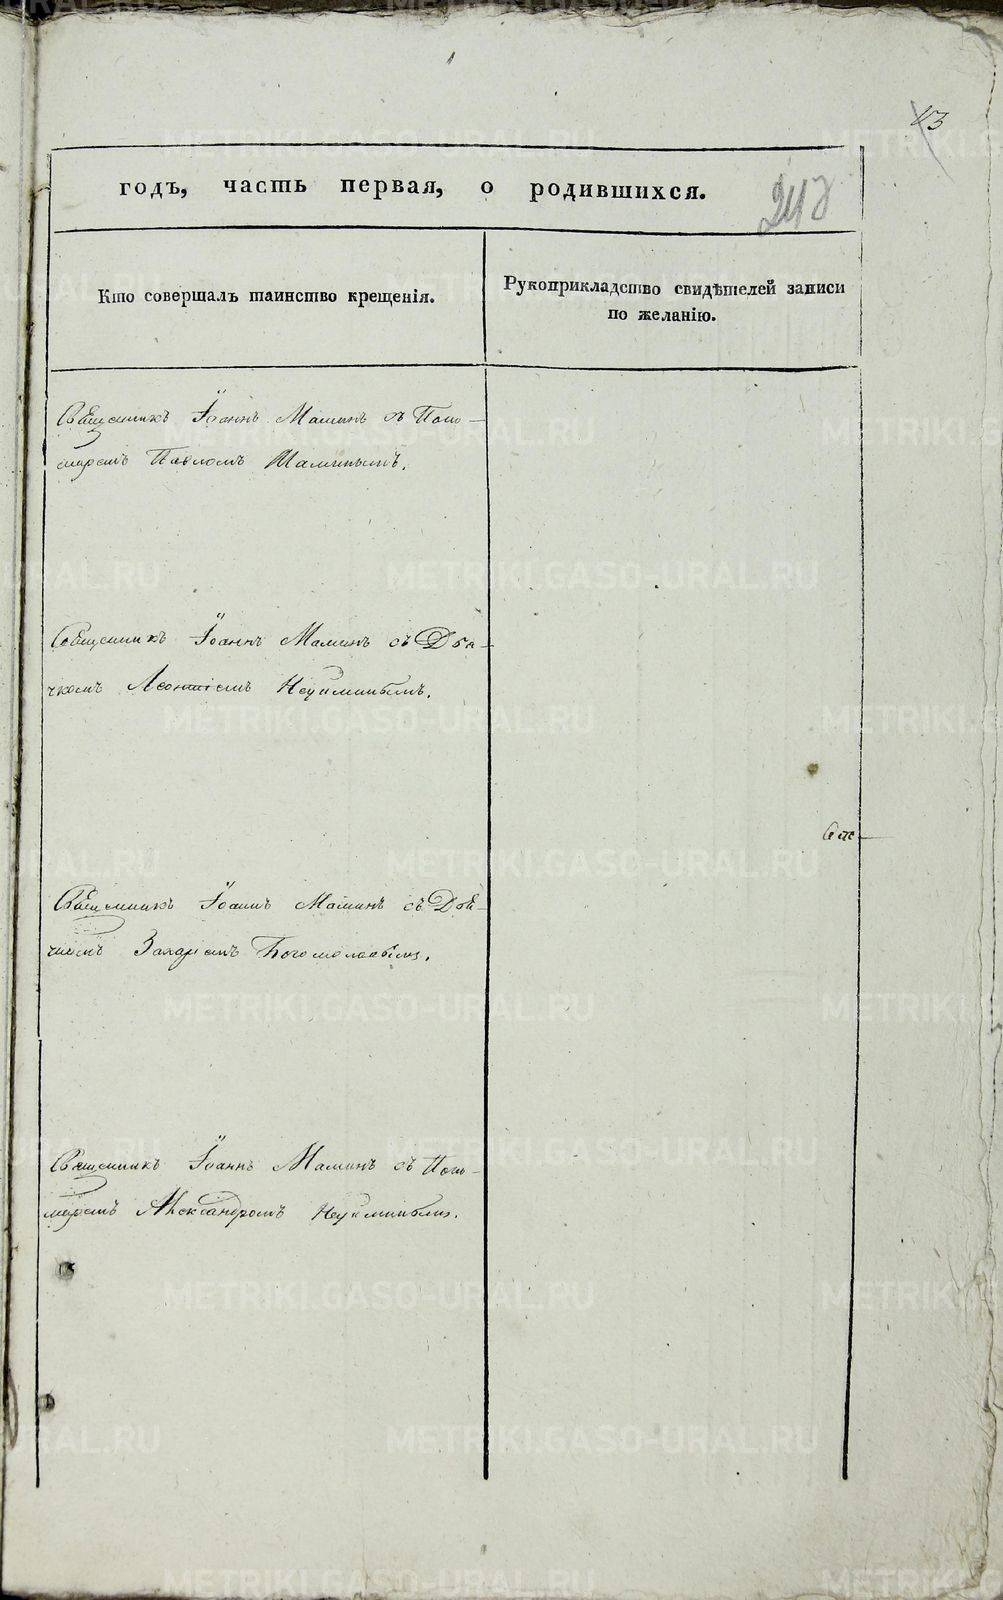 43
годъ, часть первая, о родившихся.
Кто совершалъ таинство крещенія.
Рукоприкладство свидѣтелей записи
по желанію.
Священникъ Іоаннъ Маминъ съ Поно-
маремъ Павломъ Маминымъ.
Священникъ Іоаннъ Маминъ съ Дья-
чкомъ Леонтіемъ Неуиминымъ.
Священникъ Іоаннъ Маминъ съ
Богомоловымъ.
Священникъ Іоаннъ Маминъ съ Поно-
маремъ Александромъ Неуиминымъ.
METRIKI.GASO-URAL.RU